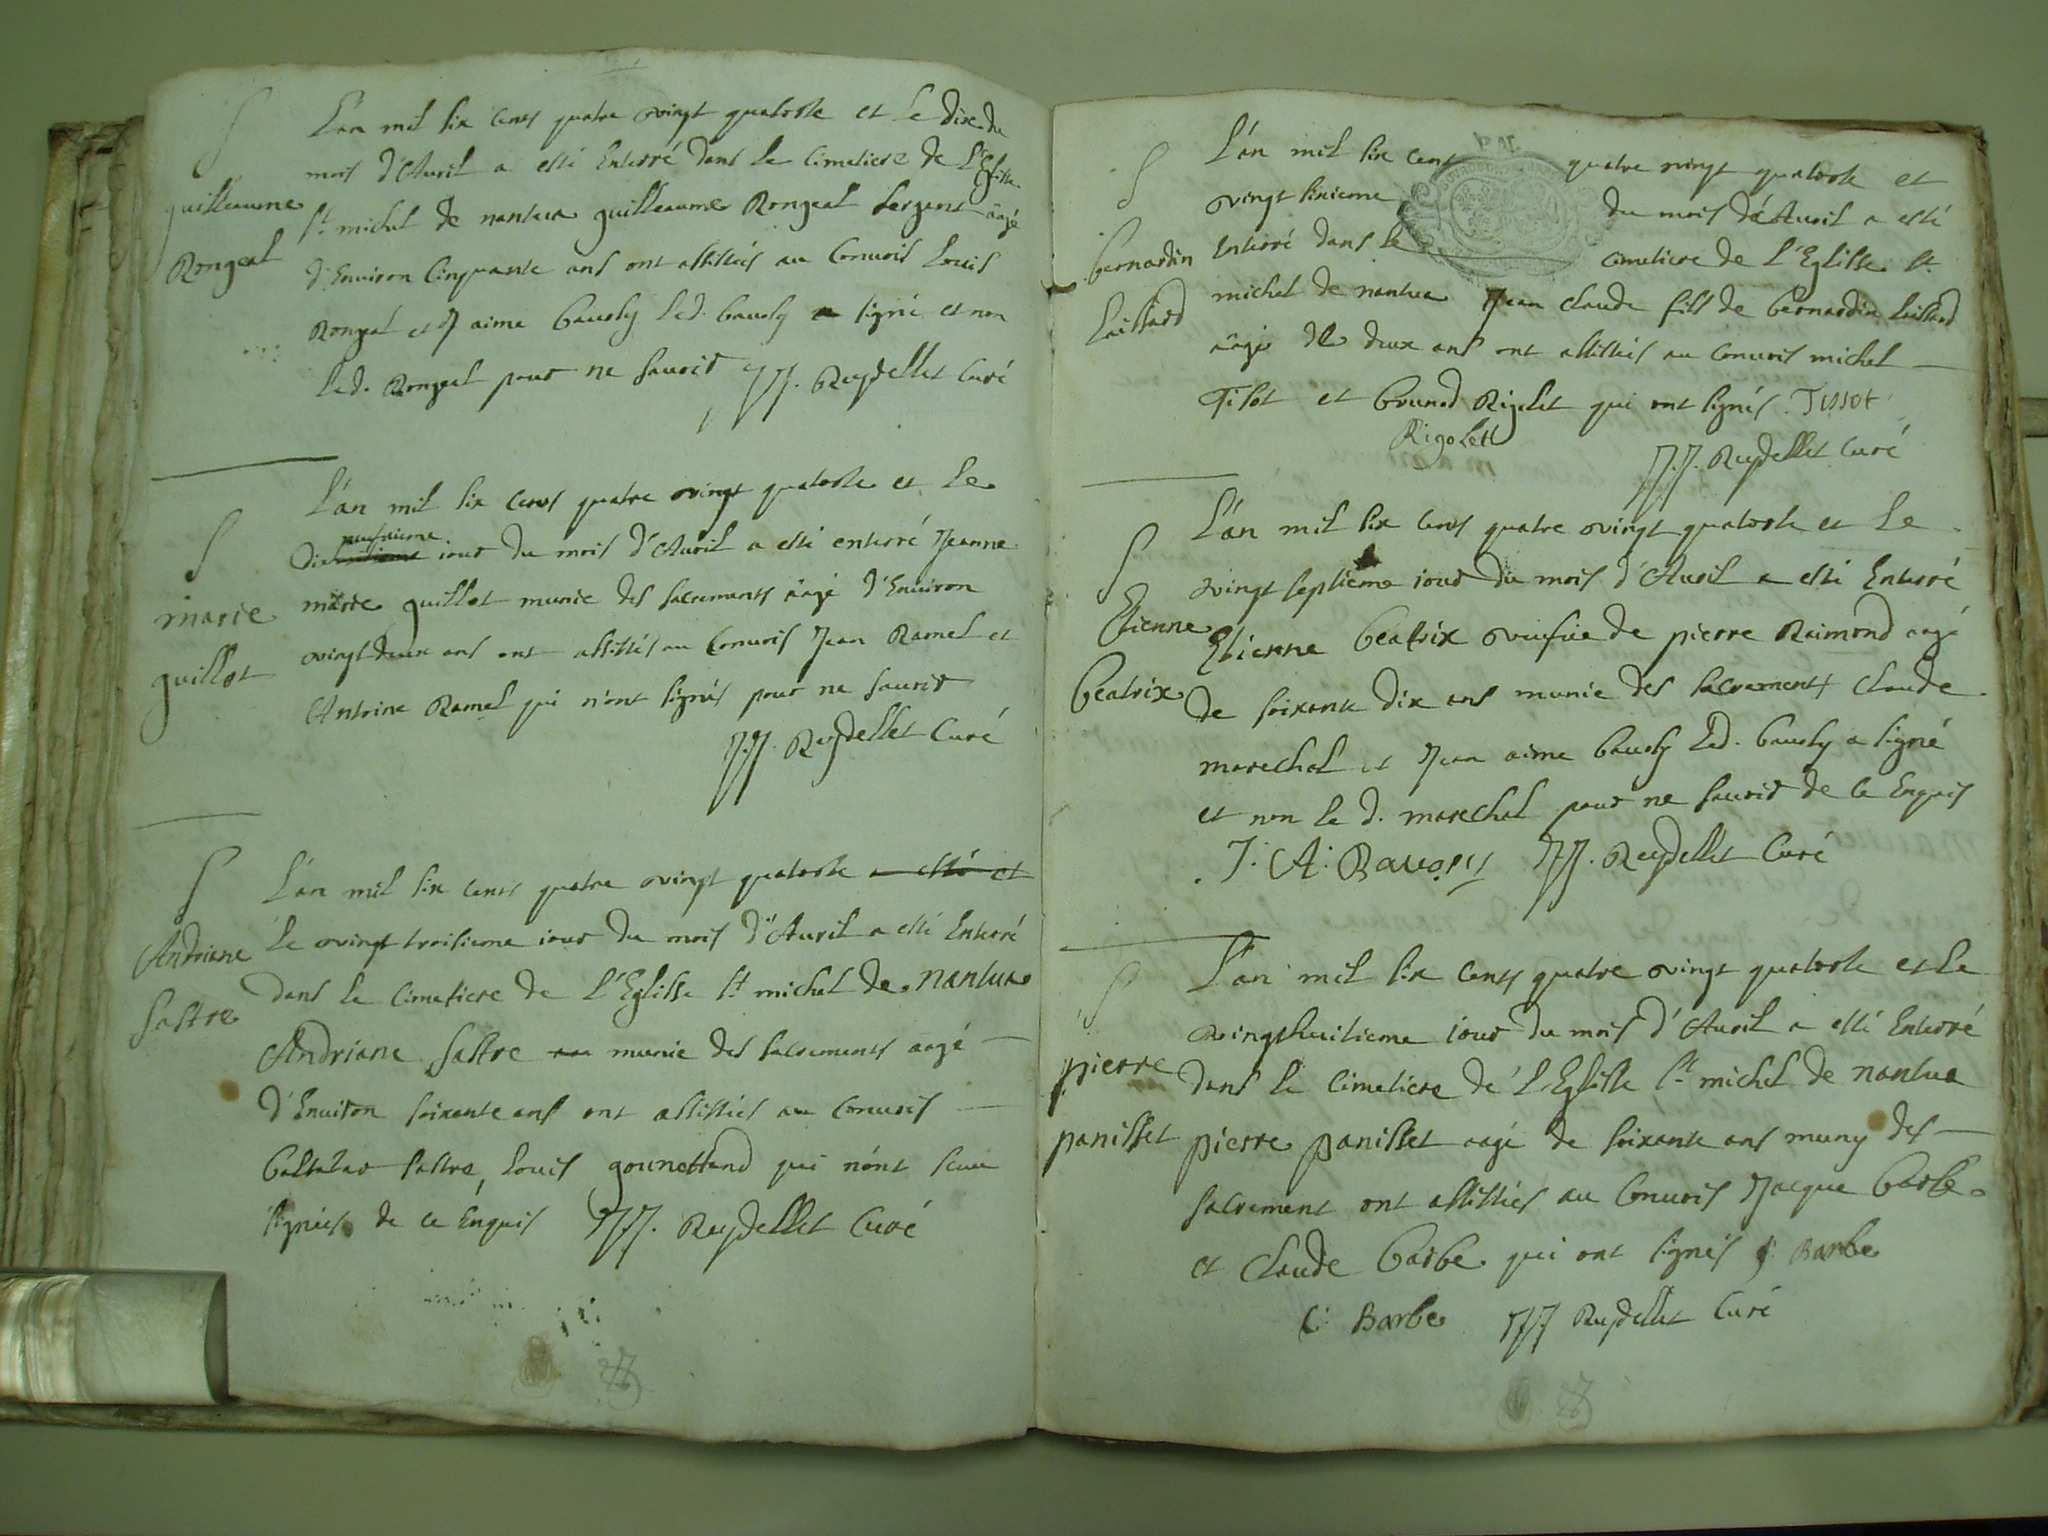 S
L'an mil six cents quatre vingt quatorse et le dix du
mois d'Auril a esté Enterré dans le cimetiere de L'Eglisse
guilleaume
st michel de nantua guilleaume Rongeat sergent aagé
Rongeat
d'Enuiron Cinquante ans ont assistés au Conuois Louis
Rongeat et J aime bauoly led. bauoly a signé et non
led. Rongeat pour ne sauoir JJ. Reydellet Curé
S
L'an mil six cents quatre vingt quatorse et le
neufuieme
dix iour du mois d'Auril a esté enterré Jeanne
marie
marie guillot munie des sacrements aagé d'Enuiron
vingt deux ans ont assistés au Conuois Jean Ramel et
guillot
Antoine Ramel qui n'ont signés pour ne sauoir
JJ. Reydellet Curé
S
L'an mil six cents quatre vingt quatorse a esté et
Andriane
le vingt troisieme iour du mois d'Auril a esté Enterré
Sastre
dans le Cimetiere de L'Eglisse st michel de nantua
Andriane Sastre munie des sacrements aagé
d'Enuiron soixante ans ont assistés au Conuois
baltasar sastre, Louis qui n'ont sceu
signés de ce Enquis JJ. Reydellet Curé
S
L'an mil six cent quatre vingt quatorse et
vingt sixieme du mois d'Auril a esté
bernardin
Enterré dans le cimetiere de L'Eglisse st
Laissard
michel de nantua Jean claude fils de bernardin Laissard
aagé de deux ans ont assistés au Conuois michel
Tisot et brunod Rigolet qui ont signés. Tissot
Rigolet
J.J. Reydellet Curé
S
L'an mil six cents quatre vingt quatorse et le
vingt septieme iour du mois d'Auril a esté Enterré
Etienne
Etienne beatrix veufue de pierre Raimond aagé
beatrix
de soixante dix ans munie des sacrements claude
marechal et Jean aime bauoly led. bauoly a signé
et non le d. marechal pour ne sauoir de ce Enquis
J. A. Bauoly JJ. Reydellet Curé
S
L'an mil six cents quatre vingt quatorse et le
vingthuitieme iour du mois d'Auril a esté Enterré
pierre
dans le Cimetiere de L'Eglisse st michel de nantua
panisset
pierre panisset aagé de soixante ans muny des
sacrement ont assistés au Conuois Jacque barbe
et Claude barbe qui ont signés J. Barbe
C. Barbe JJ Reydellet Curé